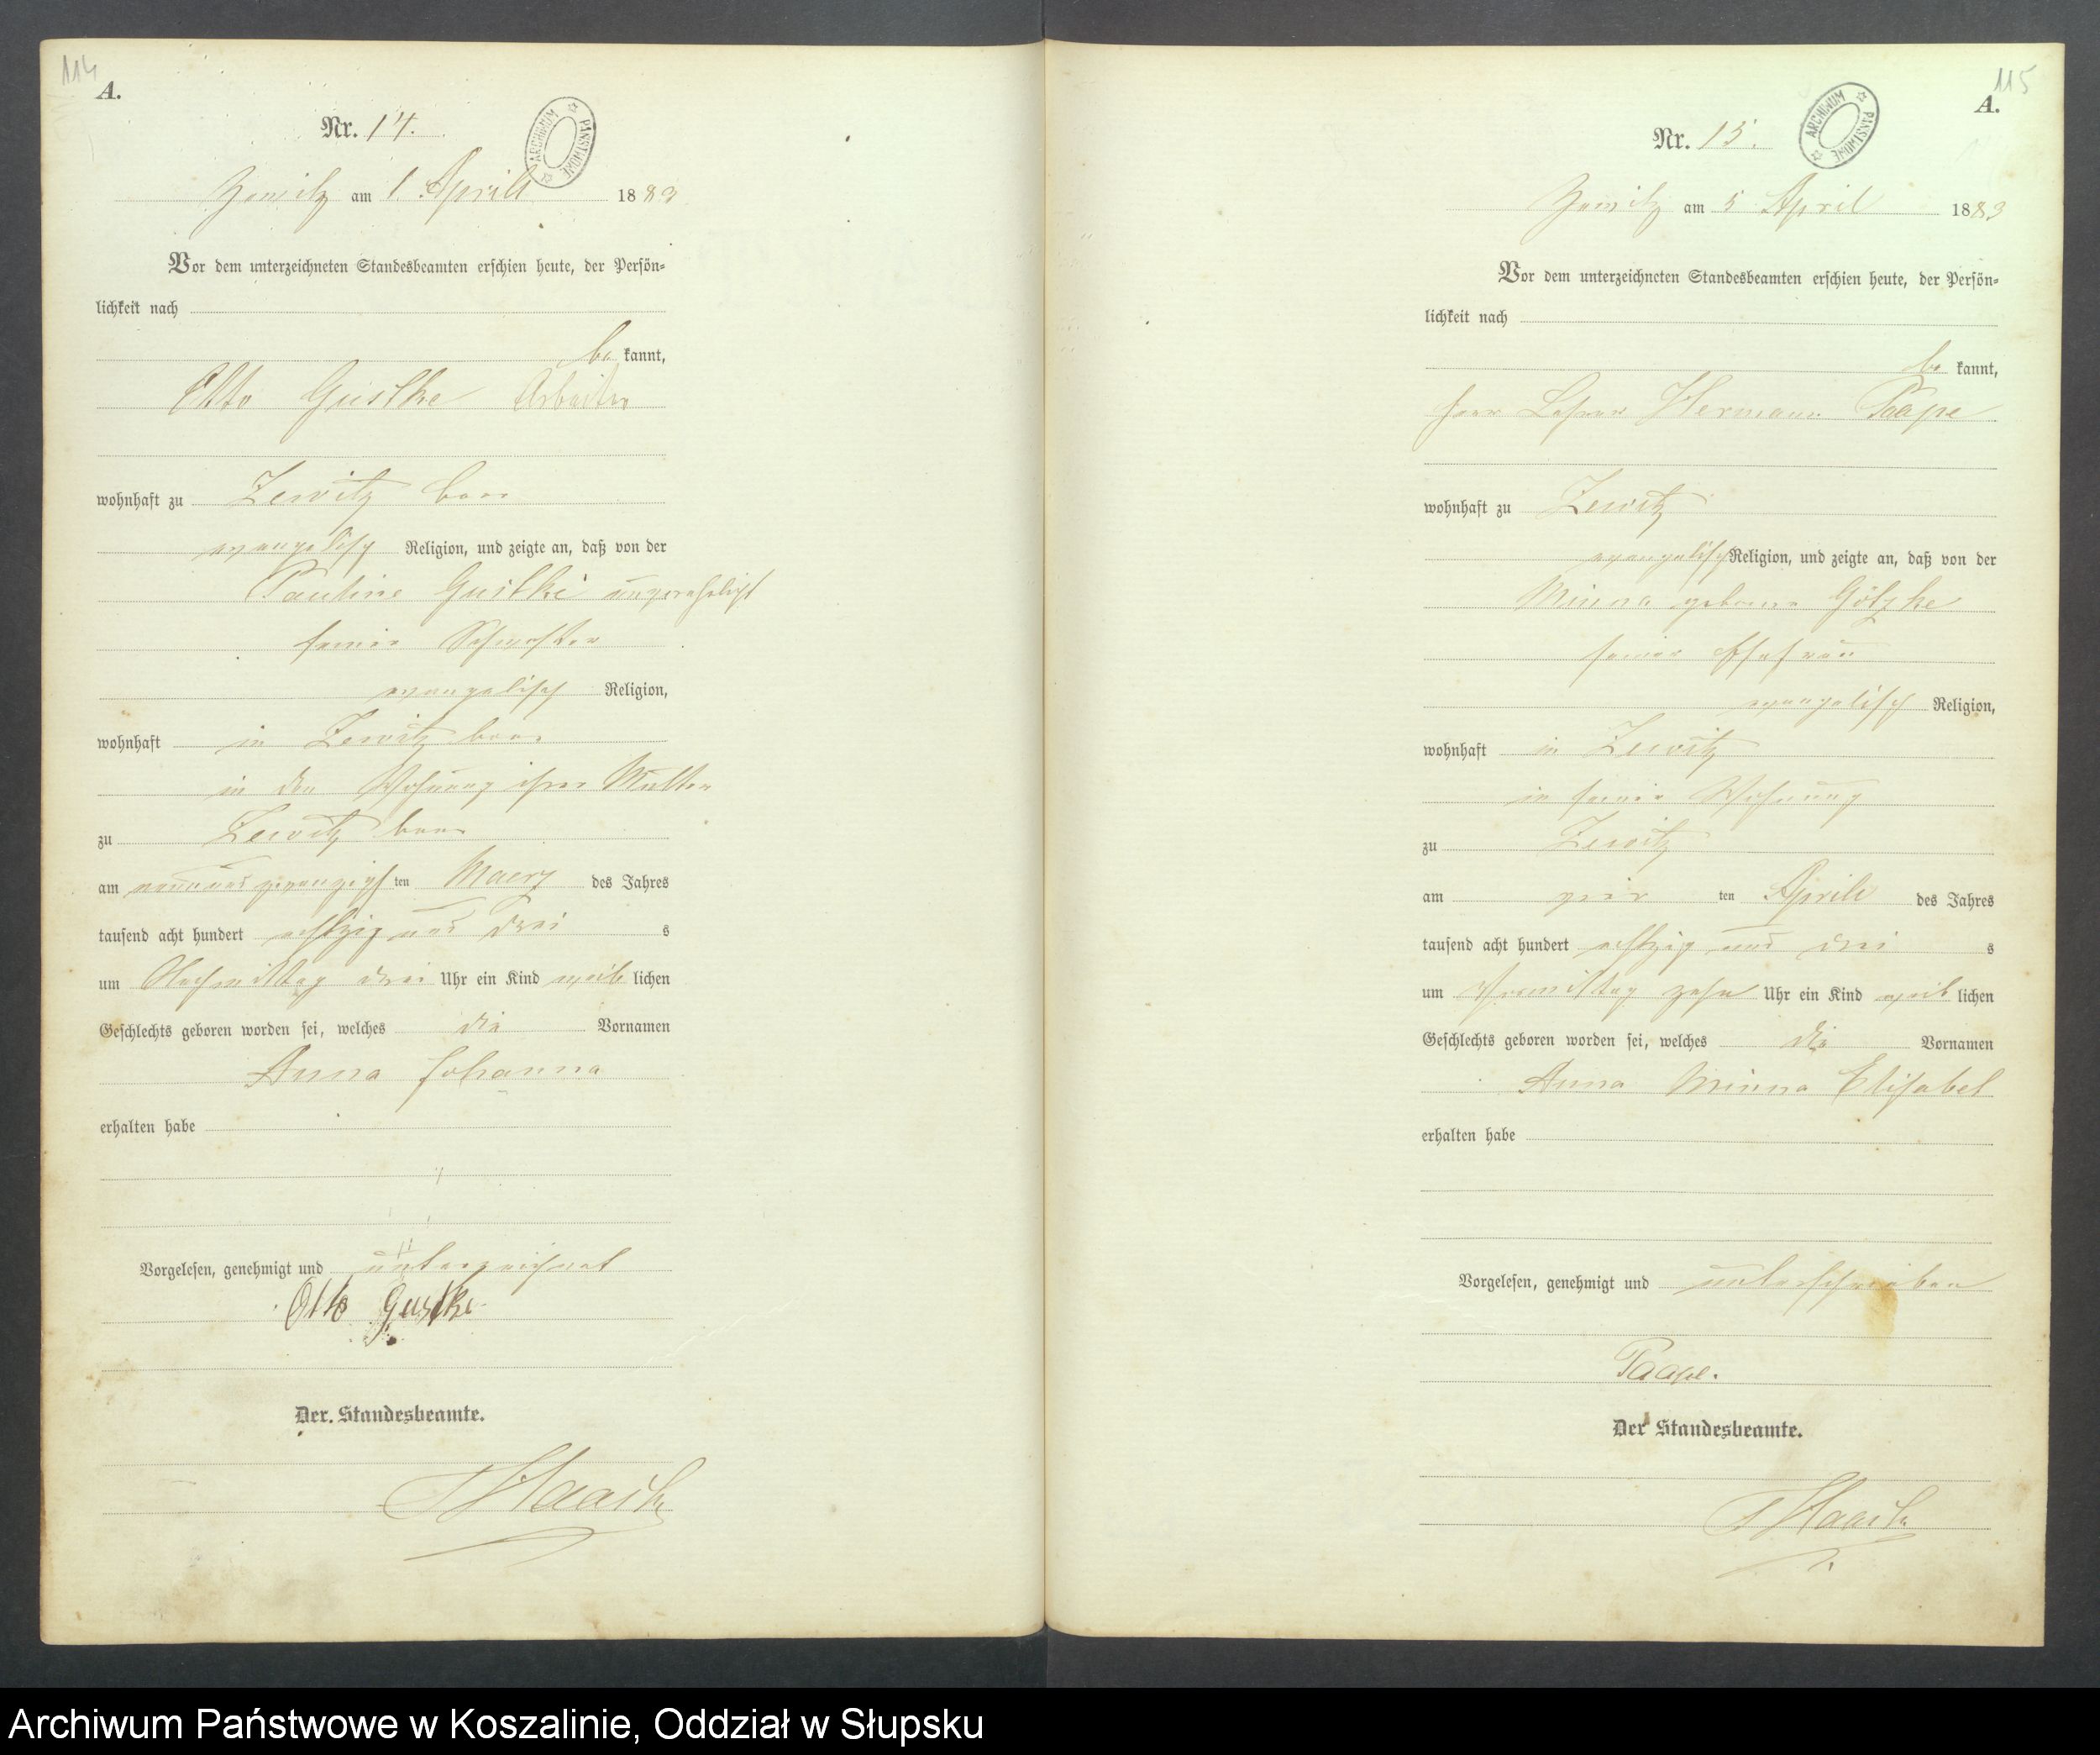 114
A.
Nr. 14.
ARCHIWUM PAŃSTWOWE
Zewitz am 1 April 1883
Vor dem unterzeichneten Standesbeamten erschien heute, der Persön=
lichkeit nach
be kannt,
Otto Gustke Arbeiter
wohnhaft zu Zewitz
evangelisch Religion, und zeigte an, daß von der
Pauline Gustke unverehelicht
seiner Schwester
evangelisch Religion,
wohnhaft in Zewitz
in der Wohnung ihrer Mutter
zu Zewitz
am neunundzwanzigsten Maerz des Jahres
tausend acht hundert achtzig und drei s
um Nachmittag drei Uhr ein Kind weiblichen
Geschlechts geboren worden sei, welches die Vornamen
Anna Johanna
erhalten habe
Vorgelesen, genehmigt und unterzeichnet
Otto Gustke
Der Standesbeamte.
115
A.
Nr. 15.
ARCHIWUM PAŃSTWOWE
Zewitz am 5 April 1883
Vor dem unterzeichneten Standesbeamten erschien heute, der Persön=
lichkeit nach
be kannt,
Herr Lehrer Hermann Paape
wohnhaft zu Zewitz
evangelisch Religion, und zeigte an, daß von der
Minna geborne Götzke
seiner Ehefrau
evangelisch Religion,
wohnhaft in Zewitz
in seiner Wohnung
zu Zewitz
am vier ten April des Jahres
tausend acht hundert achtzig und drei s
um Vormittag zehn Uhr ein Kind weiblichen
Geschlechts geboren worden sei, welches die Vornamen
Anna Minna Elisabet
erhalten habe
Vorgelesen, genehmigt und unterschrieben
Paape.
Der Standesbeamte.
Archiwum Państwowe w Koszalinie, Oddział w Słupsku